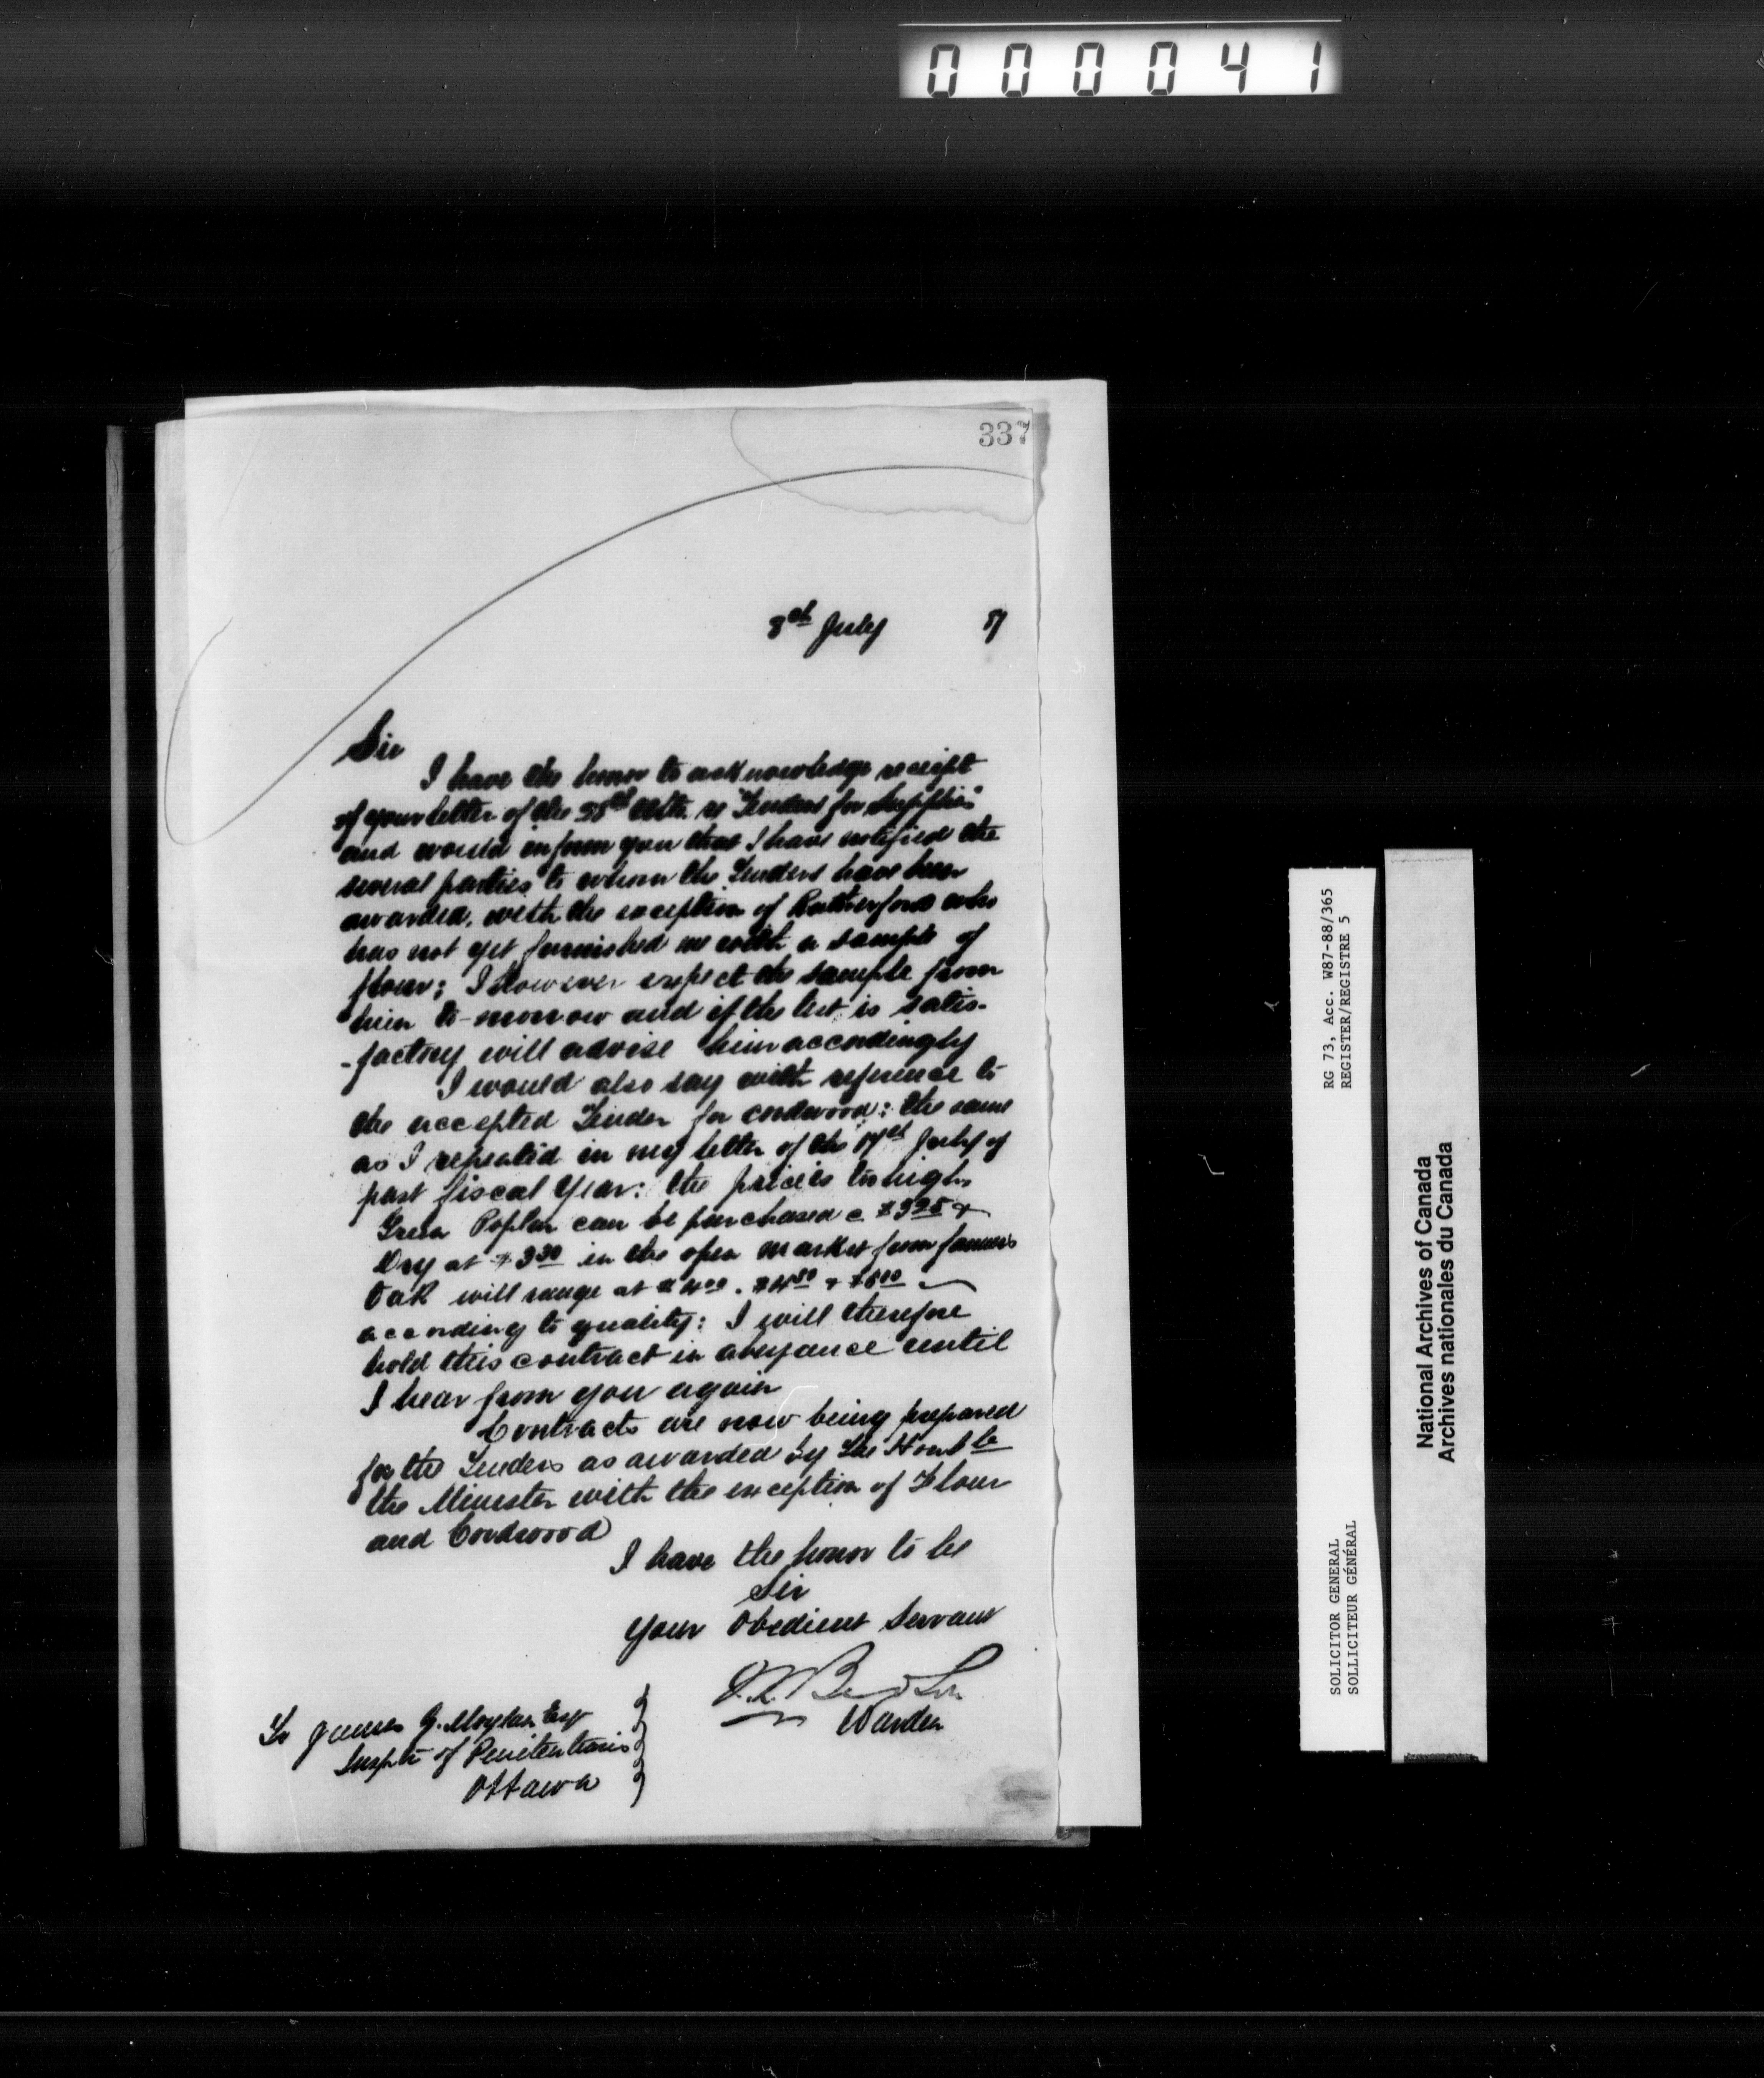 000041
337
8th July 7
Sir
I have the honor to acknowledge receipt
of your letter of the 28th Ulto. re "Tenders for Supplies"
and would inform you that I have notified the
several parties to whom the Tenders have been
awarded, with the exception of Rutherford who
has not yet furnished me with a sample of
flour; I However expect the sample from
him to-morrow and if the test is satis-
-factory will advise him accordingly
I would also say with reference to
the accepted Tender for cordwood: the same
as I repeated in my letter of the 17th July of
past fiscal year: the price is to high,
Green Poplar can be purchased @ $3.25 &
Dry at $3.50 in the open market from farmers
Oak will range at $4.00, $4.50 & $5.00
according to quality: I will therefore
hold this contract in abeyance until
I hear from you again
Contracts are now being prepared
for the Tenders as awarded by the Honble
the Minister with the exception of Flour
and Cordwood
I have the honor to be
Sir
Your Obedient Servant
Warden
To James G. Moylan Esq
Inspctr of Penitentiaries
Ottawa
RG 73, Acc. W87-88/365
REGISTER/REGISTRE 5
SOLICITOR GENERAL
SOLLICITEUR GÉNÉRAL
National Archives of Canada
Archives nationales du Canada